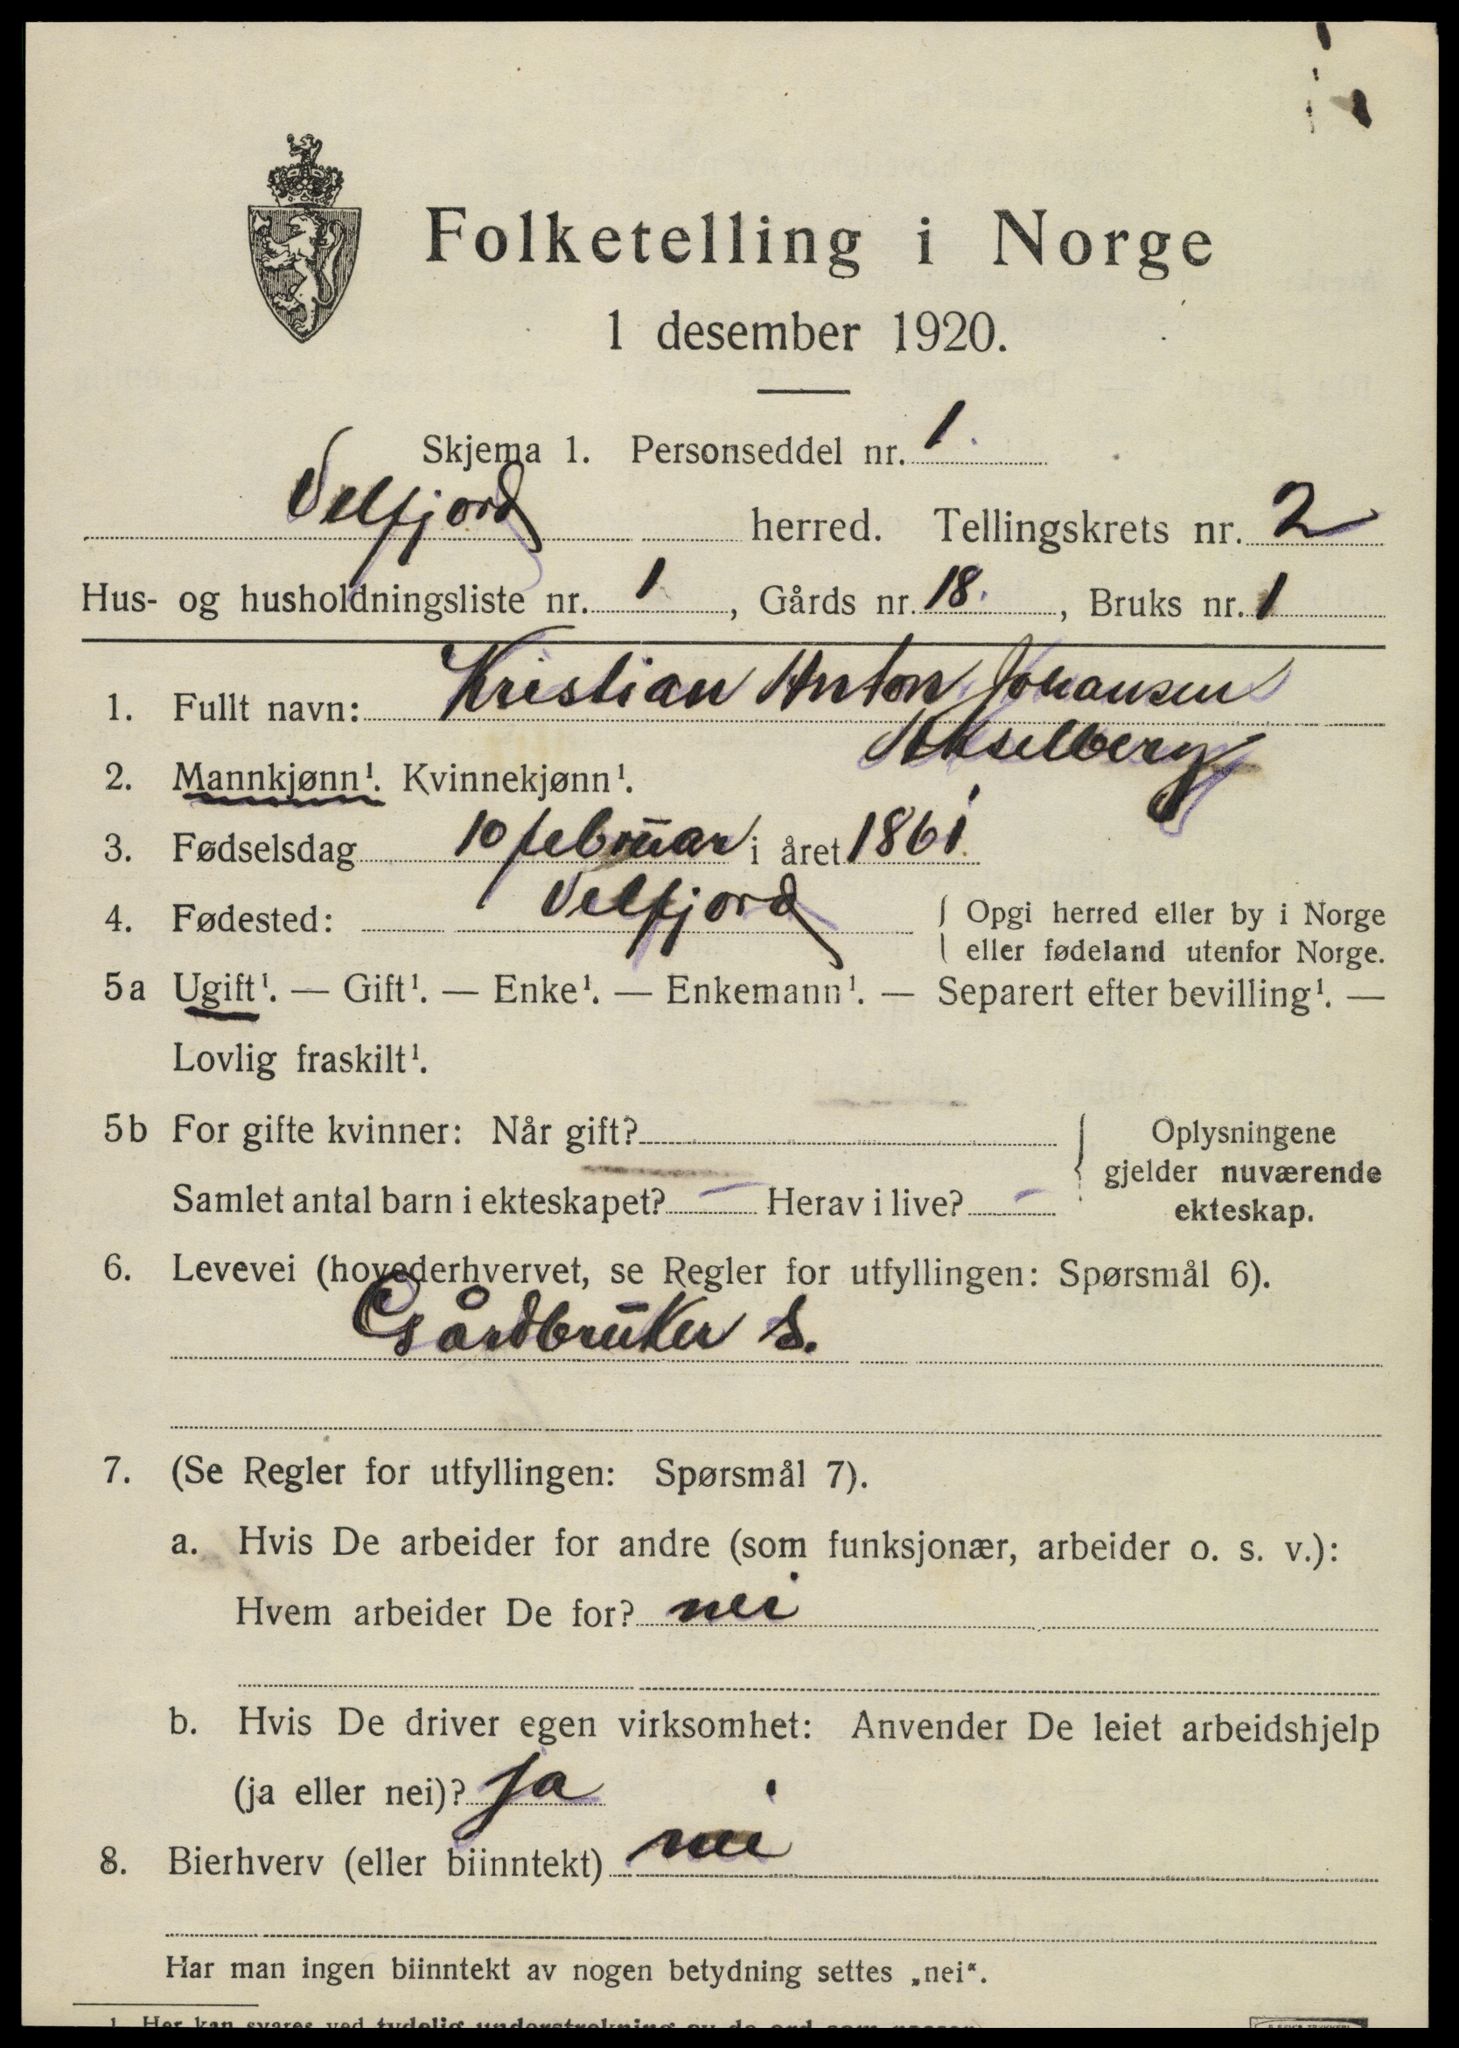 Folketelling i Norge
1 desember 1920.
Skjema 1. Personseddel nr. 1.
Velfjord herred. Tellingskrets nr. 2
Hus- og husholdningsliste nr. 1, Gårds nr. 18., Bruks nr. 1
1. Fullt navn: Kristian Anton Johansen
Akselberg
2. Mannkjønn¹. Kvinnekjønn¹.
3. Fødselsdag 10 februar i året 1861
4. Fødested: Velfjord { Opgi herred eller by i Norge
eller fødeland utenfor Norge.
5a Ugift¹. — Gift¹. — Enke¹. — Enkemann¹. — Separert efter bevilling¹. —
Lovlig fraskilt¹.
5b For gifte kvinner: Når gift? { Oplysningene
gjelder nuværende
Samlet antal barn i ekteskapet? — Herav i live? —
ekteskap.
6. Levevei (hovederhvervet, se Regler for utfyllingen: Spørsmål 6).
Gårdbruker s.
7. (Se Regler for utfyllingen: Spørsmål 7).
a. Hvis De arbeider for andre (som funksjonær, arbeider o. s. v.):
Hvem arbeider De for? nei
b. Hvis De driver egen virksomhet: Anvender De leiet arbeidshjelp
(ja eller nei)? ja
8. Bierhverv (eller biinntekt) nei
Har man ingen biinntekt av nogen betydning settes „nei“.
1. Her kan svares ved tydelig understrekning av de ord som passer.